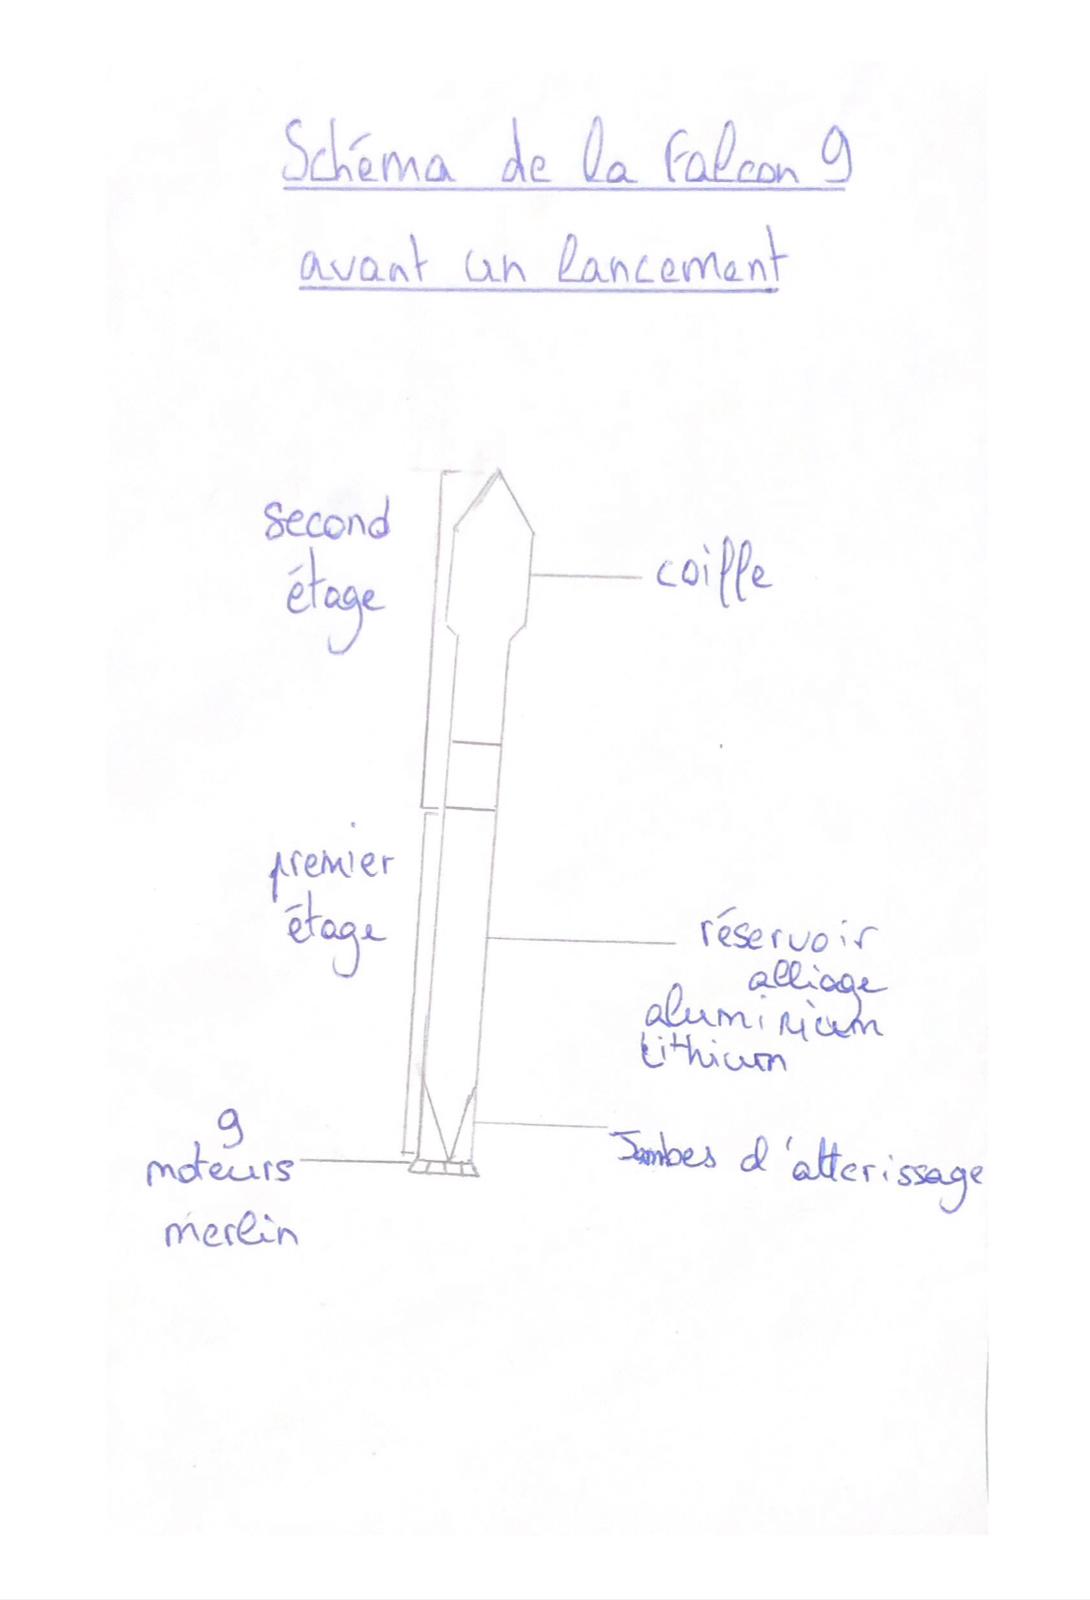 Schéma de la Falcon 9
avant un lancement
second
étage
coiffe
premier
étage
réservoir
alliage
aluminium
Lithium
9
moteurs
merlin
Jambes d'atterissage